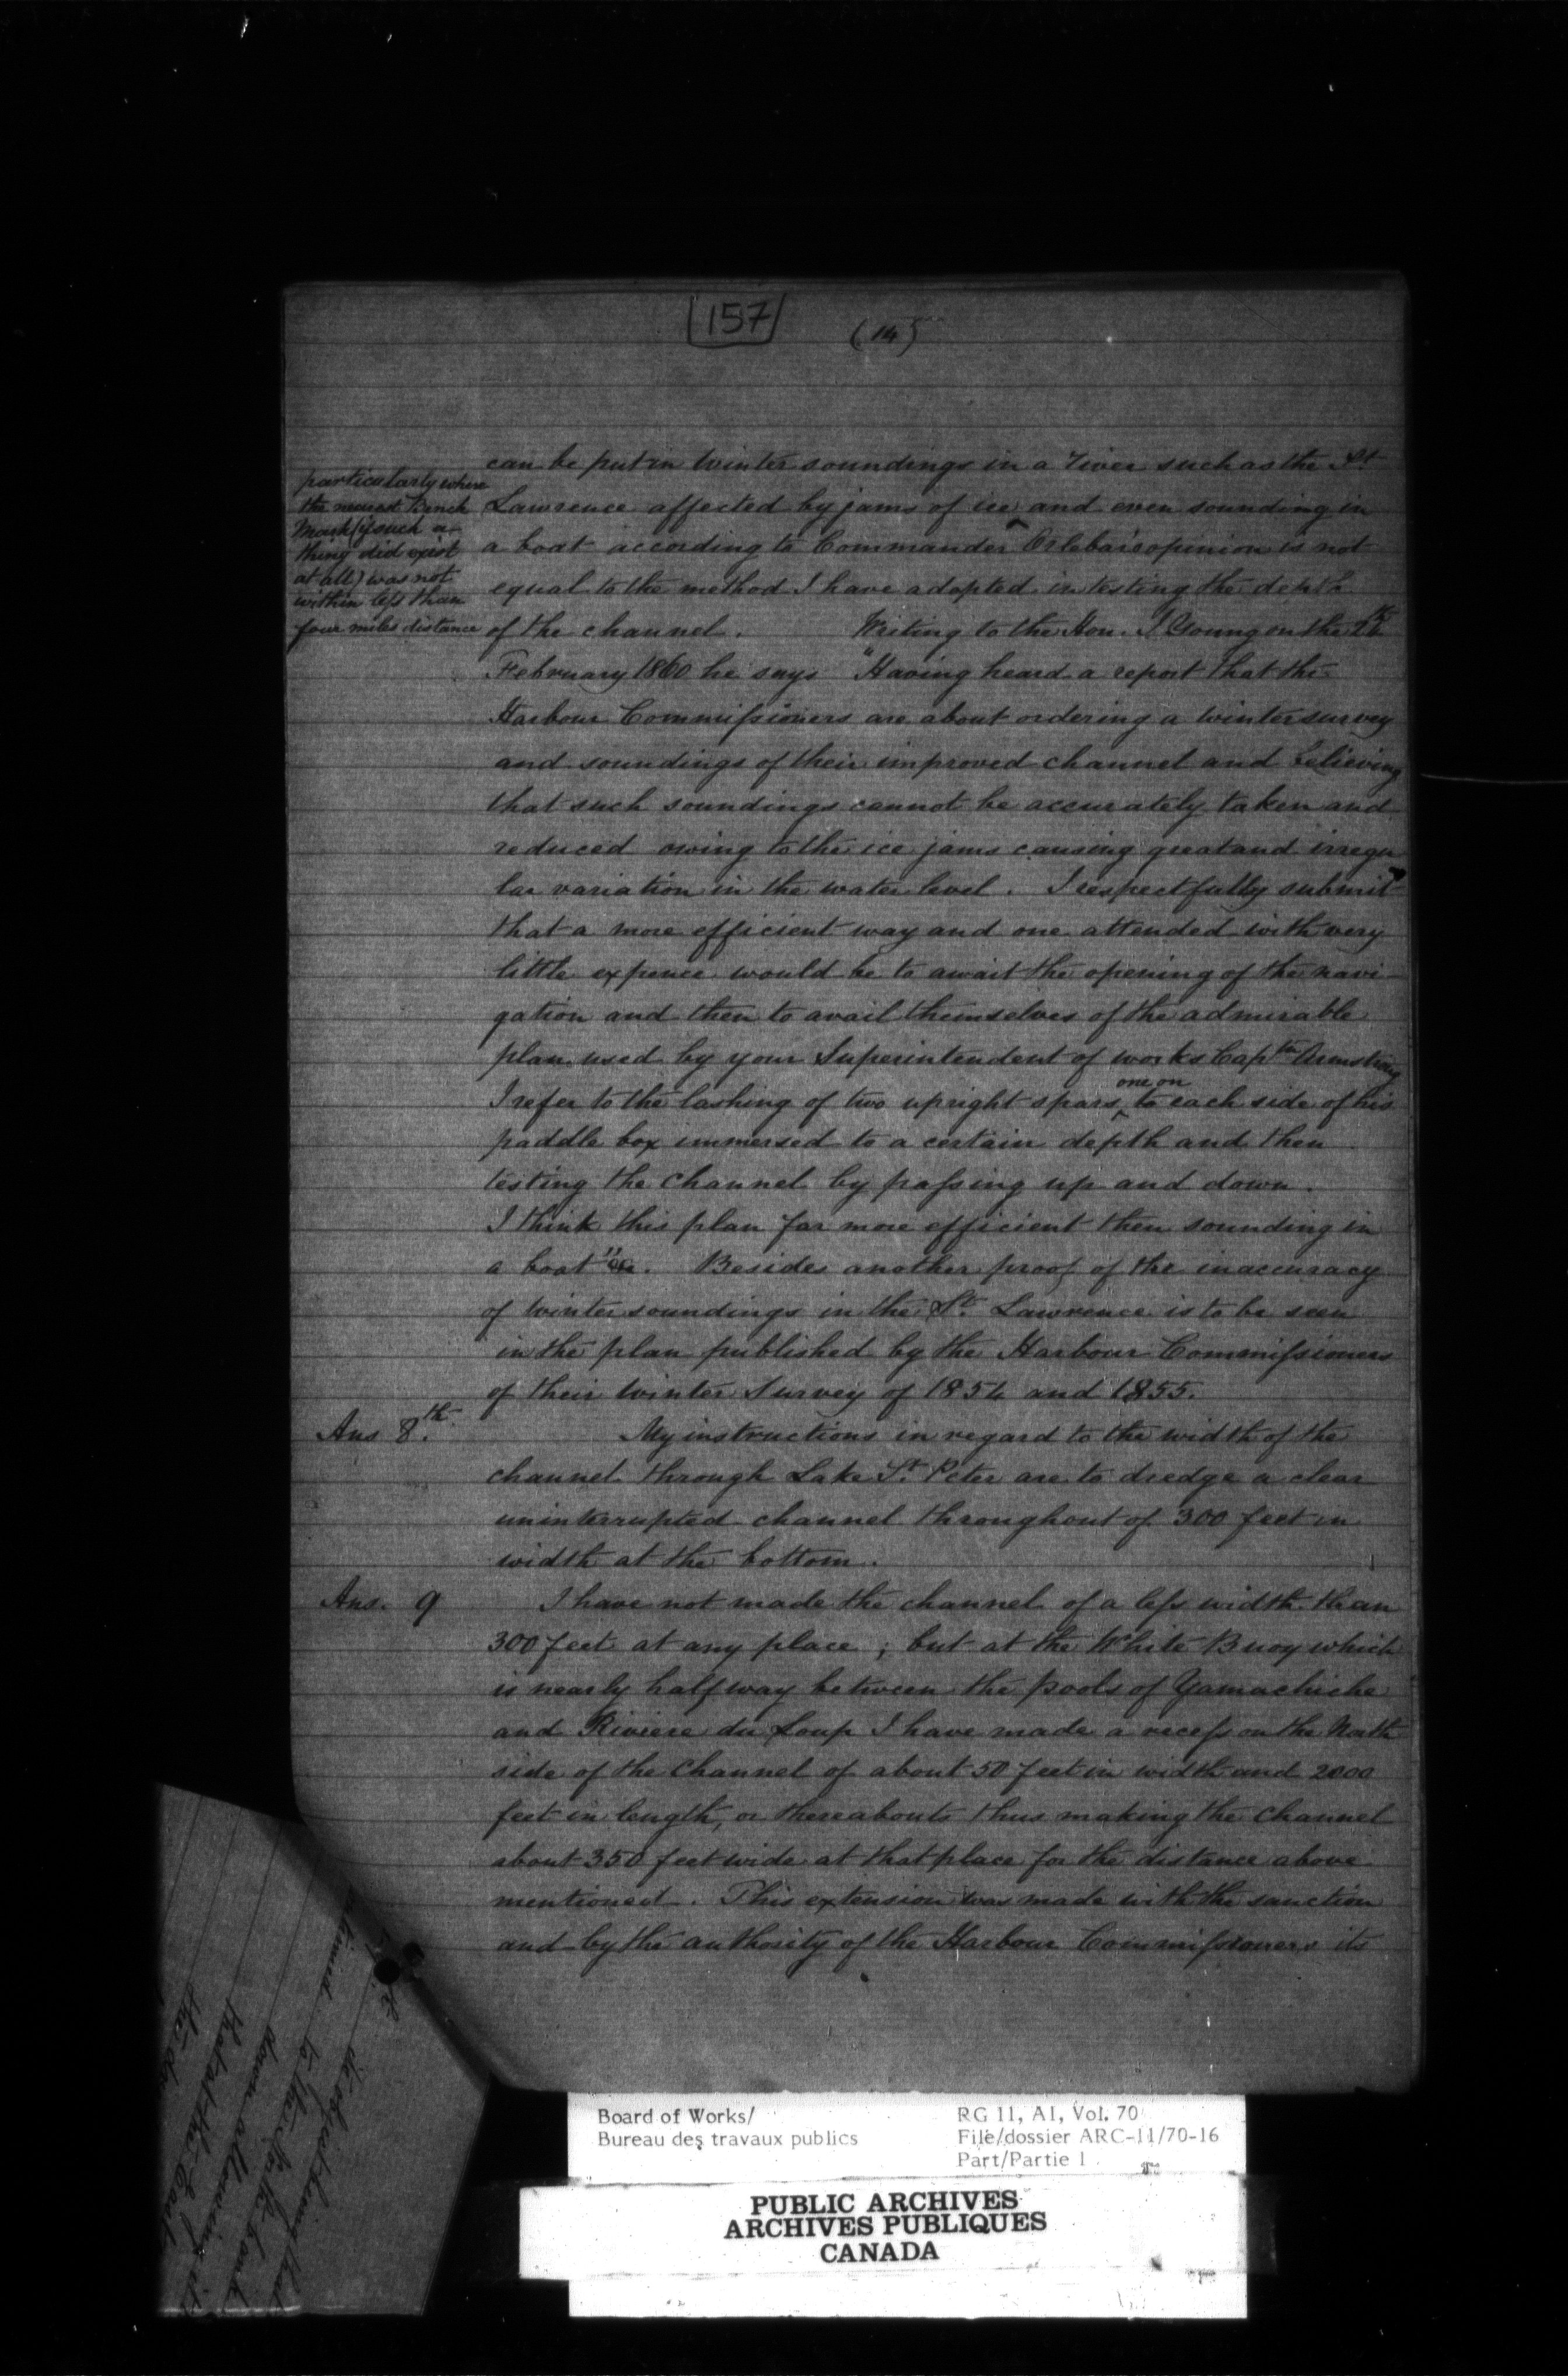 157
(14)
can be put in Winter soundings in a River such as the St
Lawrence affected by jams of ice and even sounding in
a boat according to Commander Orlebar's opinion is not
equal to the method I have adopted in testing the depth
of the channel. Writing to the Hon. J Young on the
February 1860 he says "Having heard a report that the
Harbour Commissioners are about ordering a Winter survey
and soundings of their improved channel and believing
that such soundings cannot be accurately taken and
reduced owing to the ice jams causing great and irregu
lar variation in the water level. I respectfully submit
that a more efficient way and one attended with very
little expence would be to await the opening of the navi-
gation and then to avail themselves of the admirable
plan used by your Superintendent of works Captn Armstrong
I refer to the lashing of two upright spars, one on to each side of his
paddle box immersed to a certain depth and then
testing the channel by passing up and down.
I think this plan far more efficient then sounding in
a boat" &c. Besides another proof of the inaccuracy
of Winter soundings in the St. Lawrence is to be seen
in the plan published by the Harbour Commissioners
of their Winter Survey of 1854 and 1855.
particularly where
the nearest Bench
Mark (if such a
thing did exist
at all) was not
within less than
four miles distance
Ans 8th.
My instructions in regard to the width of the
channel through Lake St. Peter are to dredge a clear
uninterrupted channel throughout of 300 feet in
width at the bottom.
Ans. 9
I have not made the channel of a less width than
300 feet at any place; but at the White Buoy which
is nearly halfway between the pools of Yamachiche
and Riviere du Loup I have made a recess on the North
side of the Channel of about 50 feet in width and 2000
feet in length, or thereabouts thus making the channel
about 350 feet wide at that place for the distance above
mentioned. This extension was made with the sanction
and by the authority of the Harbour Commissioners its
to the North bank
down allowing it
that at the
Board of Works/
Bureau des travaux publics
RG 11, A1, Vol. 70
File/dossier ARC-11/70-16
Part/Partie 1
PUBLIC ARCHIVES
ARCHIVES PUBLIQUES
CANADA